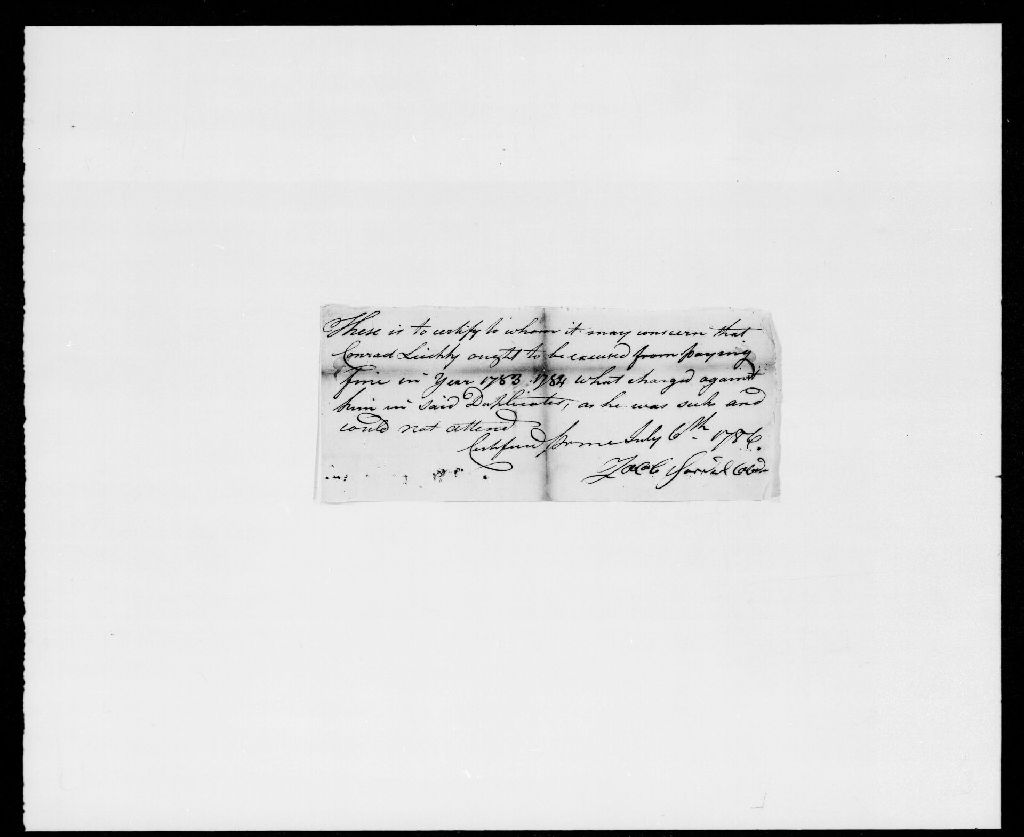 These is to certify to whom it may conscern that
Conrad ought to be excused from paying
fine in Year 1783 1784 what charged against
him in said Duplicates, as he was sick and
could not attend
Certified July 6th 1786.
Jacob